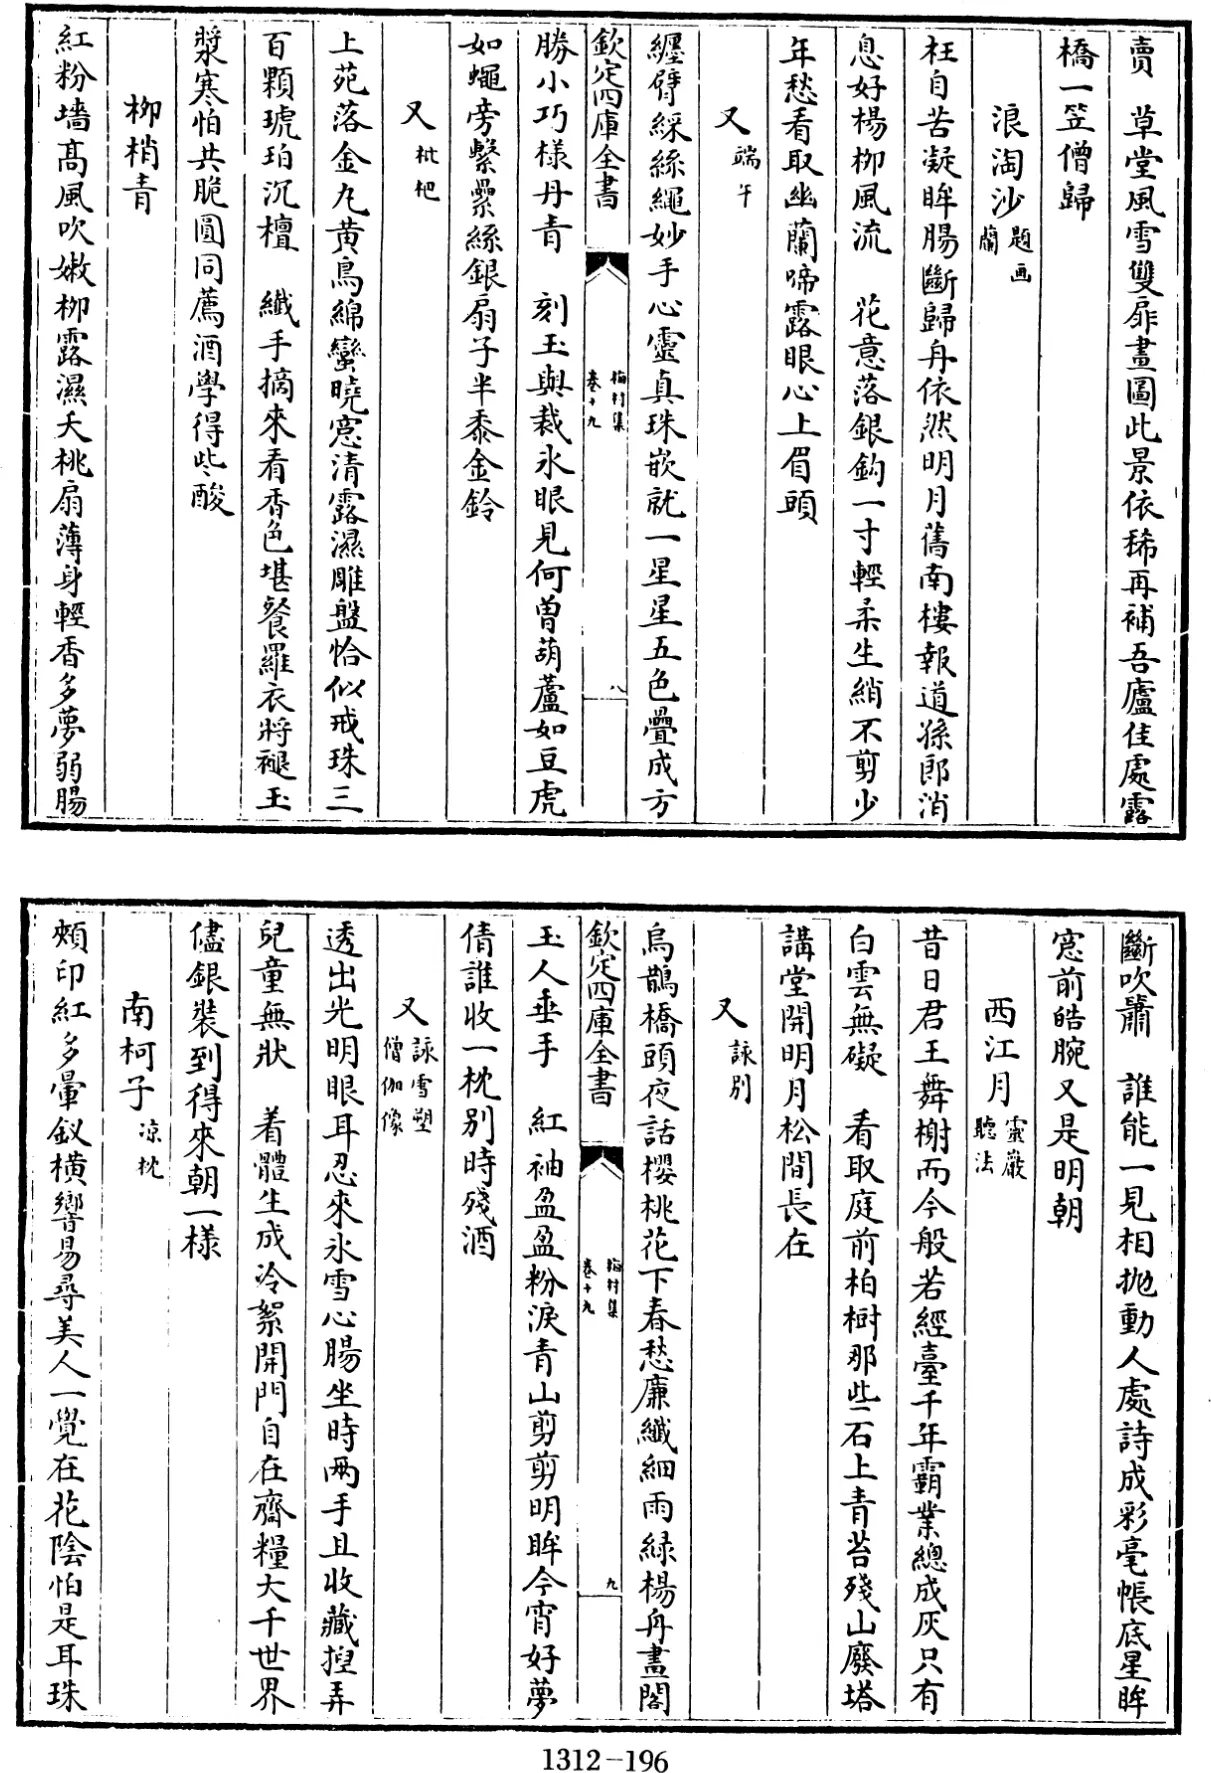 賣　草堂風雪雙扉畫圖此景依稀再補吾廬佳處露
橋一笠僧歸
浪淘沙題画蘭
枉自苦凝眸腸斷歸舟依然明月舊南樓報道孫郎消
息好楊柳風流　花意落銀鈎一寸輕柔生綃不剪少
年愁看取幽蘭啼露眼心上眉頭
又端午
纏臂綵絲繩妙手心靈真珠嵌就一星星五色疊成方
欽定四庫全書
梅村集
卷十九
八
勝小巧樣丹青　刻玉與裁氷眼見何曽葫蘆如豆虎
如蠅旁繫纍絲銀扇子半黍金鈴
又枇杷
上苑落金丸黄鳥綿蠻曉窓清露濕雕盤恰似戒珠三
百顆琥珀沉檀　纎手摘來看香色堪餐羅衣將褪玉
漿寒怕共脆圓同薦酒學得些酸
柳梢青
紅粉墻髙風吹嫩柳露濕夭桃扇薄身輕香多夢弱腸
斷吹簫　誰能一見相抛動人處詩成彩毫帳底星眸
窓前皓腕又是明朝
西江月靈巖聽法
昔日君王舞榭而今般若經臺千年霸業總成灰只有
白雲無礙　看取庭前柏樹那些石上青苔殘山廢塔
講堂開明月松間長在
又詠别
烏鵲橋頭夜話櫻桃花下春愁廉纎細雨緑楊舟畫閣
欽定四庫全書
梅村集
卷十九
九
玉人垂手　紅袖盈盈粉淚青山剪剪明眸今宵好夢
倩誰收一枕别時殘酒
又詠雪塑僧伽像
透出光明眼耳忍來氷雪心腸坐時兩手且收藏揑弄
兒童無狀　着體生成冷絮開門自在齋糧大千世界
儘銀裝到得來朝一樣
南柯子凉枕
頰印紅多暈釵横響易尋美人一覺在花陰怕是耳珠
1312-196